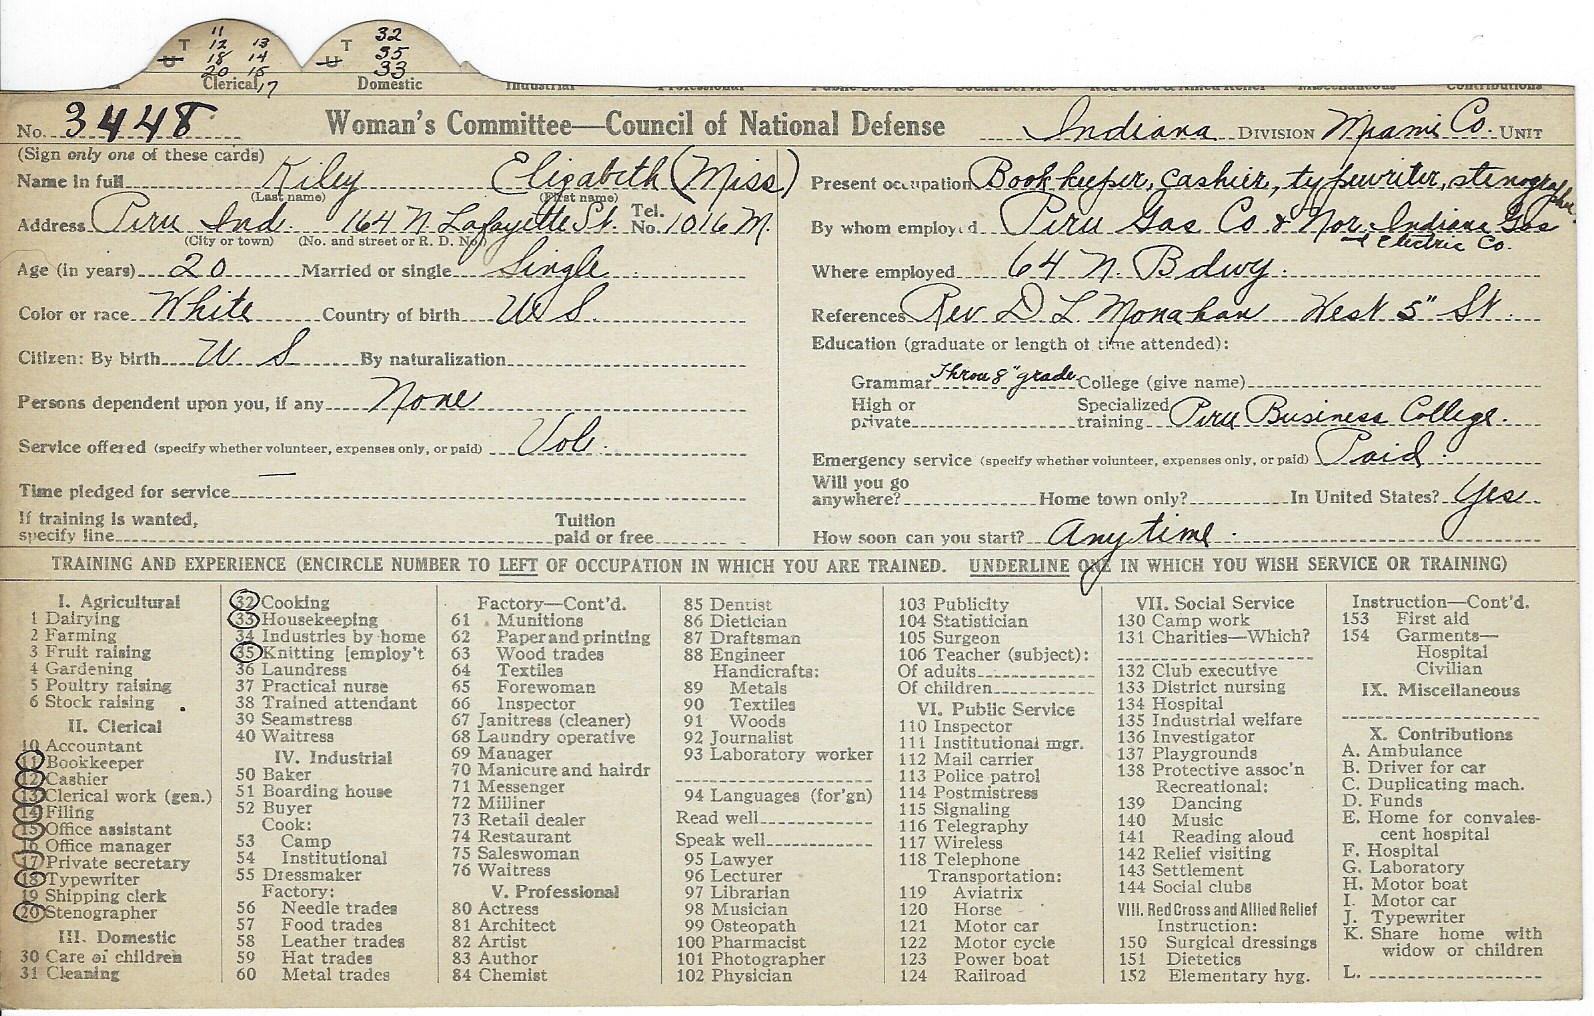 11
T 12 13
U 18 14
20 15
Clerical 17
32
T 35
U 33
Domestic
Industrial Professional Public Service Social Service Red Cross & Allied Relief Miscellaneous Contributions
No. 3448 Woman's Committee—Council of National Defense Indiana DIVISION Miami Co. UNIT
(Sign only one of these cards)
Name in full Kiley Elizabeth (Miss)
(Last name) (First name)
Address Peru Ind. 164 N Lafayette St. Tel. No. 1016 M.
(City or town) (No. and street or R. D. No.)
Age (in years) 20 Married or single Single
Color or race White Country of birth U S.
Citizen: By birth U S By naturalization
Persons dependent upon you, if any None
Service offered (specify whether volunteer, expenses only, or paid) Vol.
Time pledged for service —
If training is wanted, specify line Tuition paid or free
Present occupation Bookkeeper, cashier, typewriter, stenographer.
By whom employed Peru Gas Co & Nor. Indiana Gas
and Electric Co.
Where employed 64 N. Bdwy.
References Rev D L Monahan West 5" St.
Education (graduate or length of time attended):
Grammar Throu 8" grade College (give name)
High or private Specialized training Peru Business College.
Emergency service (specify whether volunteer, expenses only, or paid) Paid.
Will you go anywhere? Home town only? In United States? Yes
How soon can you start? Any time.
TRAINING AND EXPERIENCE (ENCIRCLE NUMBER TO LEFT OF OCCUPATION IN WHICH YOU ARE TRAINED. UNDERLINE ONE IN WHICH YOU WISH SERVICE OR TRAINING)
I. Agricultural
1 Dairying
2 Farming
3 Fruit raising
4 Gardening
5 Poultry raising
6 Stock raising
II. Clerical
10 Accountant
11 Bookkeeper
12 Cashier
13 Clerical work (gen.)
14 Filing
15 Office assistant
16 Office manager
17 Private secretary
18 Typewriter
19 Shipping clerk
20 Stenographer
III. Domestic
30 Care of children
31 Cleaning
32 Cooking
33 Housekeeping
34 Industries by home
35 Knitting [employ't
36 Laundress
37 Practical nurse
38 Trained attendant
39 Seamstress
40 Waitress
IV. Industrial
50 Baker
51 Boarding house
52 Buyer
Cook:
53 Camp
54 Institutional
55 Dressmaker
Factory:
56 Needle trades
57 Food trades
58 Leather trades
59 Hat trades
60 Metal trades
Factory—Cont'd.
61 Munitions
62 Paper and printing
63 Wood trades
64 Textiles
65 Forewoman
66 Inspector
67 Janitress (cleaner)
68 Laundry operative
69 Manager
70 Manicure and hairdr
71 Messenger
72 Milliner
73 Retail dealer
74 Restaurant
75 Saleswoman
76 Waitress
V. Professional
80 Actress
81 Architect
82 Artist
83 Author
84 Chemist
85 Dentist
86 Dietician
87 Draftsman
88 Engineer
Handicrafts:
89 Metals
90 Textiles
91 Woods
92 Journalist
93 Laboratory worker
94 Languages (for'gn)
Read well
Speak well
95 Lawyer
96 Lecturer
97 Librarian
98 Musician
99 Osteopath
100 Pharmacist
101 Photographer
102 Physician
103 Publicity
104 Statistician
105 Surgeon
106 Teacher (subject):
Of adults
Of children
VI. Public Service
110 Inspector
111 Institutional mgr.
112 Mail carrier
113 Police patrol
114 Postmistress
115 Signaling
116 Telegraphy
117 Wireless
118 Telephone
Transportation:
119 Aviatrix
120 Horse
121 Motor car
122 Motor cycle
123 Power boat
124 Railroad
VII. Social Service
130 Camp work
131 Charities—Which?
132 Club executive
133 District nursing
134 Hospital
135 Industrial welfare
136 Investigator
137 Playgrounds
138 Protective assoc'n
Recreational:
139 Dancing
140 Music
141 Reading aloud
142 Relief visiting
143 Settlement
144 Social clubs
VIII. Red Cross and Allied Relief
Instruction:
150 Surgical dressings
151 Dietetics
152 Elementary hyg.
Instruction—Cont'd.
153 First aid
154 Garments—
Hospital
Civilian
IX. Miscellaneous
X. Contributions
A. Ambulance
B. Driver for car
C. Duplicating mach.
D. Funds
E. Home for convales-
cent hospital
F. Hospital
G. Laboratory
H. Motor boat
I. Motor car
J. Typewriter
K. Share home with
widow or children
L.